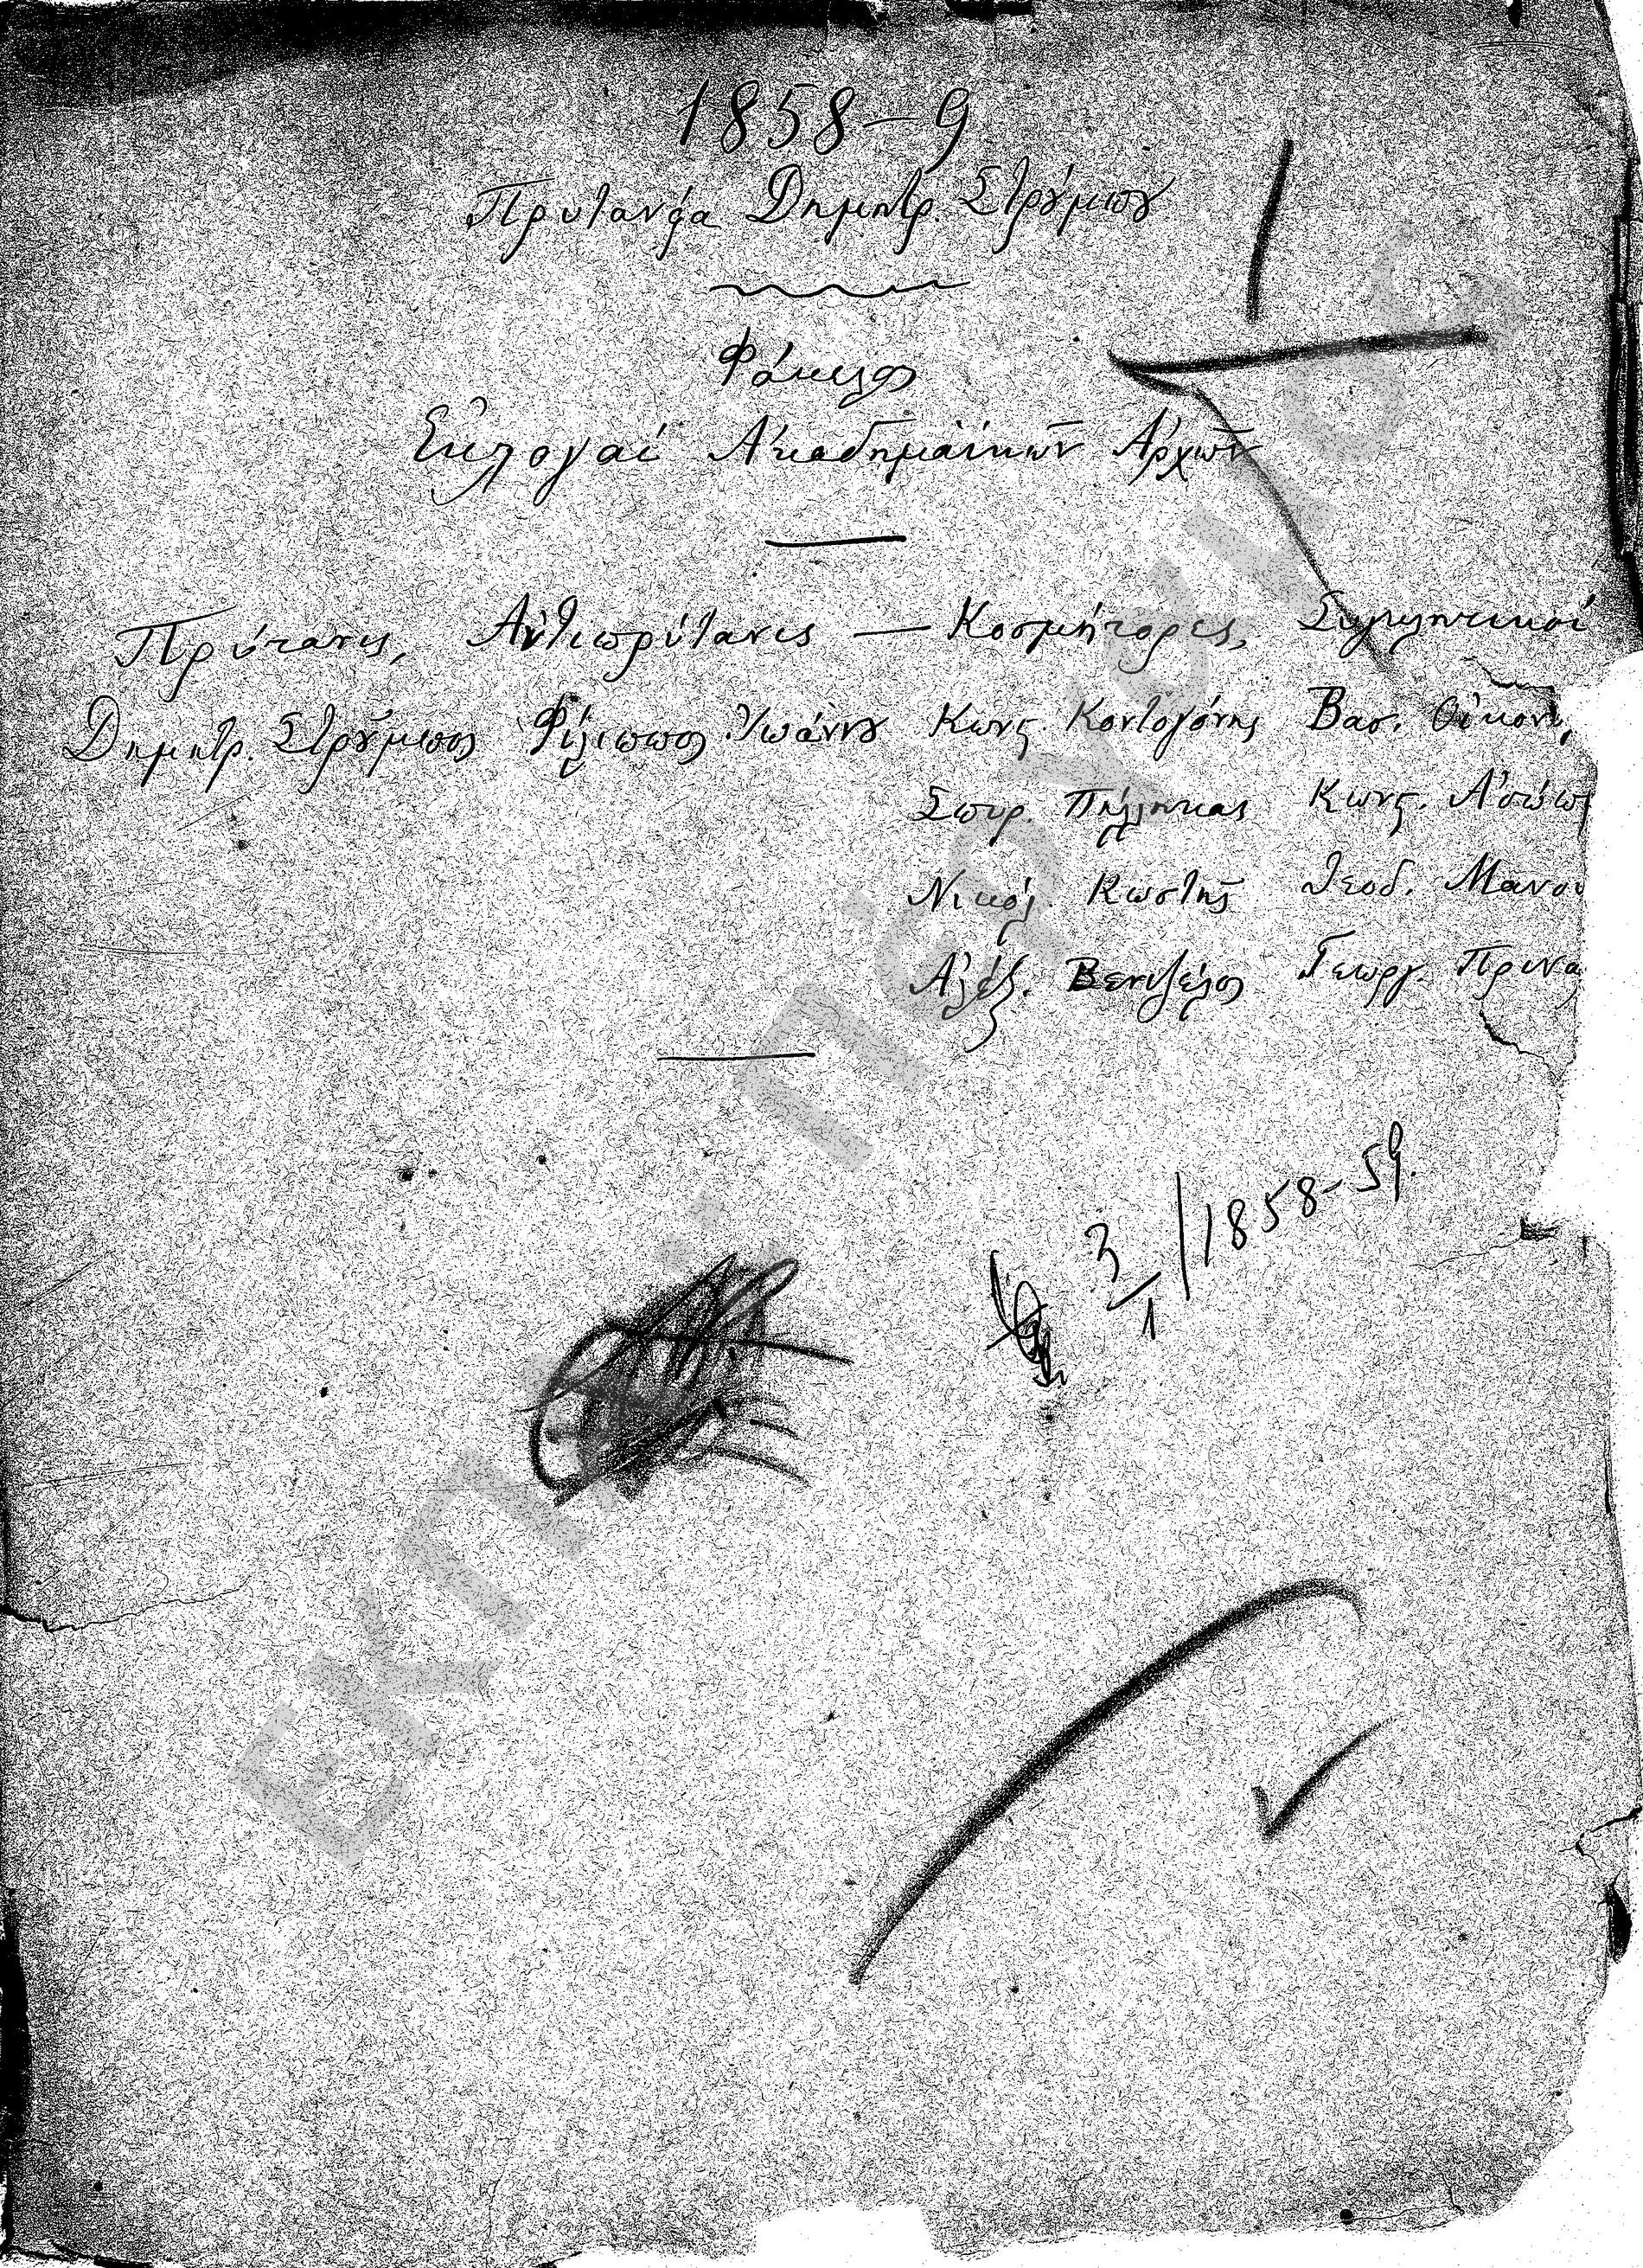 1858-9
Πρυτανεία Δημητρ Στρούμπου
Φάκελος
Ἐκλογαί Ἀκαδημαϊκῶν Ἀρχῶν
Πρύτανις, Ἀντιπρύτανις — Κοσμήτορες, Συγκλητικοί
Δημητρ. Στροῦμπος Φίλιππος Ἰωάννου Κωνς. Κοντογόνης Βασ. Οἰκον
Σπυρ. Πήλληκας Κωνς. Ἀσώπ
Νικόλ. Κωστῆς Θεοδ. Μανου
Ἀλέξ. Βενιζέλος Γεωργ. Πρινα
3/1 | 1858-59.
ΕΚΠΑ: Πέργαμος